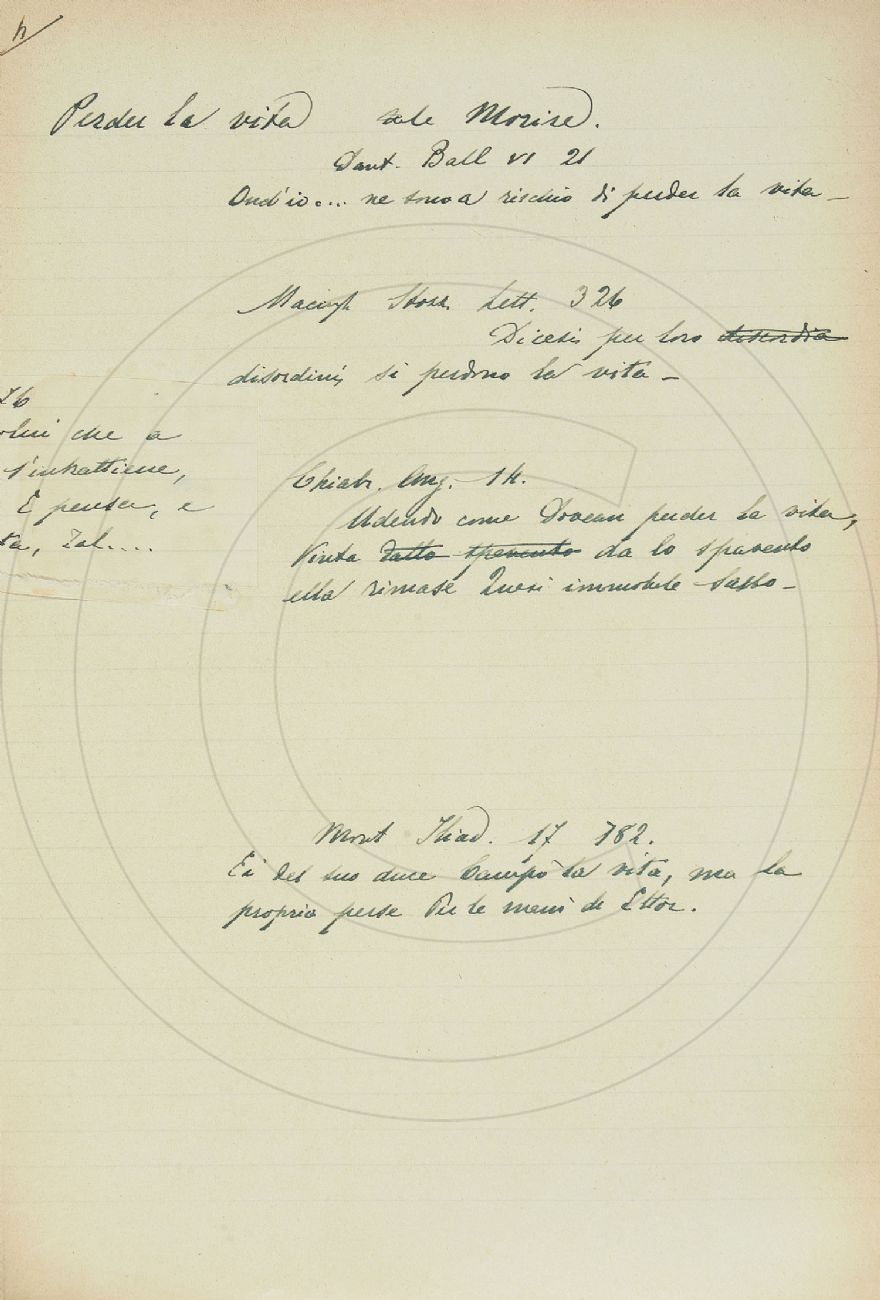 4
Perder la vita vale Morire.
Dant. Ball VI 21
Ond'io.... ne sono a rischio di perder la vita _
Macingh Stozz. Lett. 326
Dicesi per loro discordia
disordini si perdono la vita _
26
che a
s'intrattiene,
È pensa, e
Tal....
Chiabr. Ang. 14.
Udendo come dovean perder la vita,
Vinta dallo spavento da lo spavento
ella rimase Quasi immobile sasso _
Mont Iliad. 17 782.
Ei del suo duce Campò la vita, ma la
propria perse Per le mani di Ettor.